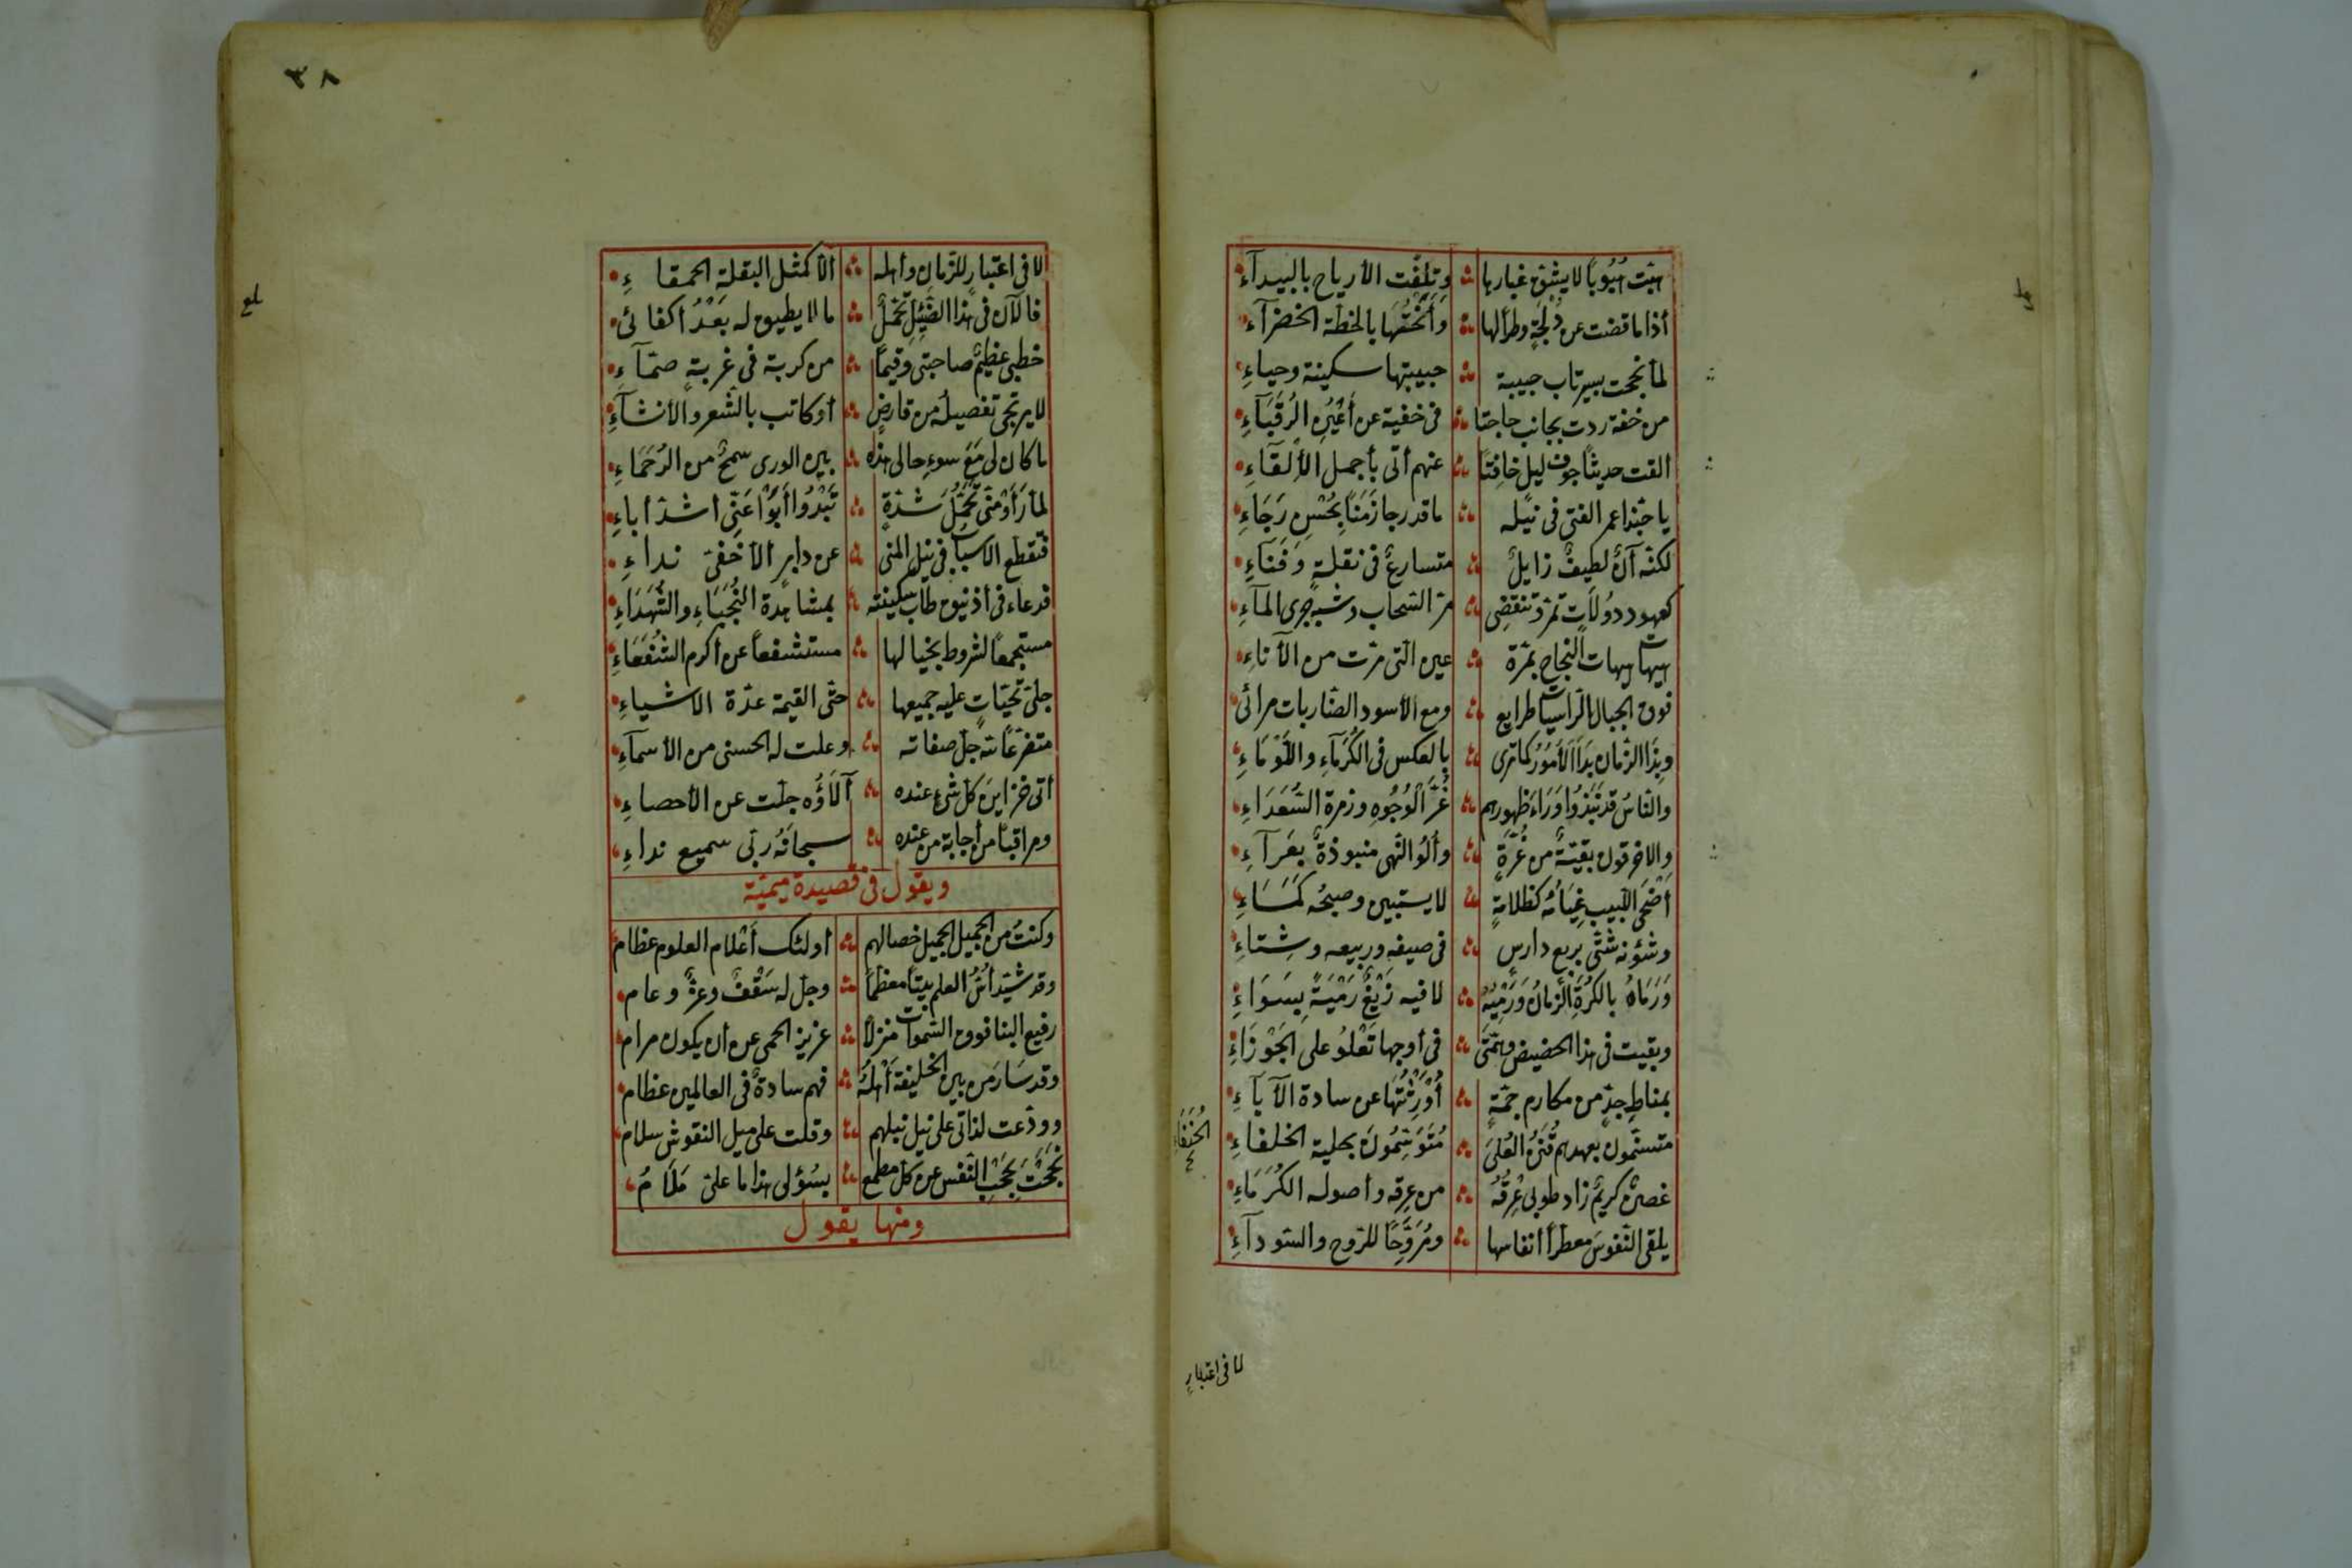 هبّت هُبُوبًا لا يشق غبارها وتلفّت الأرياح بالبيدآء
أذا ما قضت عن دُلجَةٍ وطرًا لها وَأَنَخْتُهَا بالخطّة الخضرآء
لمّا نجحت بسيرتاب حبيبة حبيبتها سكينة وحياءِ
من خفة ردت بجانب حاجتا فى خفية عن أَعْيُنِ الرُقَبَآءِ
القت حديثًا جوف ليل خافِتًا عنهم أتى بأجمل الألقَاءِ
يا حبّذا عمر الفتى فى نيله ما قدر جا زَمَنًا بِحُسْنِ رَجَاءِ
لكنّه آنٌ لطيفٌ زايلٌ متسارعٌ فى نقلةٍ وَفَنَاءِ
كعهود دوُلَاتٍ تمرّ وتنقضِى مرّ السّحاب وشبهِ جرى المآءِ
هيهات هيهات النجاح بمرّة عين الّتى مرّت من الآناءِ
فوق الجبال الرّاسيات طرايع ومع الأسود الضّاربات مرائى
وبذا الزمان بَدَا الأُمُورُ كما ترى بالعكس فى الكُرَمَآءِ واللُّوَمَاءِ
والنّاسُ قد نَبَذُوا وَرَاءَ ظهورهم غُرّ الْوُجُوهِ وزمرة السُّعَدَاءِ
والاخرقون بقيّةٌ من غُرَّةٍ وألُو النّهى منبوذةٌ بعَرآءِ
أَضْحَى اللّبيب ضِيَاؤُه كظلامةٍ لا يستبين وصبحُه كَمَسَاءِ
وشؤنه شتّى بربع دارسٍ فى صيفه وربيعه وشِتاءِ
وَرَمَاهُ بالكُرَةِ الزمانُ وَرَمْيُهُ لا فيه زَيْغٌ رَمْيَةً بِسَوَاءِ
وبقيت فى هذا الحضيض وهمّتى فى أوجها تَعْلُو على الجَوْزَاءِ
بمناطِ جدٍّ من مكارم جمّةٍ أُوْرِثْتُهَا عن سادة الآباءِ
متسنّمون بعهدهم قُنَنُ العُلىَ مُتَوَسِّمُونَ بحلية الخلفاءِ
الحُنَفَاءِ
غصنٌ كريمٌ زاد طوبى عِرْقُهُ من عِرقه وأصوله الكُرَمَاءِ
يلقى النّفوسَ معطرًا أنفاسها ومُرَوِّحًا للرّوح والسّودآءِ
لا فى اعتبارِ
٣٨
لا فى اعتبارٍ للزّمان وأهله الّا كمثل البقلة الحمقاءِ
فالآن فى هذا الضَّئِيْلِ تحمّلٌ ما لا يطيق له بَعْدُ أكفائى
خطبى عظيمٌ صاحبتى وقيمًا من كربة فى غربةٍ صمّاءِ
لا يرتجى تفصيلُه من قارضٍ أو كاتب بالشّعر والأنشآءِ
ما كان لى مَعَ سوءِ حالى هذه بين الورى سمحٌ من الرُحَمَاءِ
لمّا رَأَوْ مَنّى تحَمُّلَ شدّةٍ تَبَدُوا أَبَوْا عَنِّى أشدّ أباءِ
فتقطّع الاسباب فى نيل المنى عن دابرٍ الّا خفىّ نداءِ
قد عاء فى أذنيق طاب سكينته بمشاهدة النُجَبَاءِ والشُّهَدَاءِ
مستجمعًا لشروط بخيالها مستشفعاً عن أكرم الشُفَعَاءِ
جلّىَ تحيّاتٍ عليه جميعها حتّى القيمة عدّة الاشياءِ
متضرّعًا لله جلّ صفاته وعلت له الحسنى من الأسمآءِ
أتى خزاينَ كلّ شئٍ عنده آلَاؤُه جلّت عن الأحصاءِ
ومراقبًا من أجابة من عنده سبحانَهُ ربّى سميع نداءِ
ويقول فى قصيدة ميميّة
وكنتُ من الجميل الجميل خصالهم أولئك أعْلام العلوم عظام
وقد شيّد أُسُّ العلم بيتًا معظمًا وجلّ له سَقْفٌ وعزٌّ وعام
رفيع البنا فوق السّموات منزلًا عزيز الحمى عن أن يكون مرام
وقد سَارَ من بين الخليفة أهلُهُ فهم سادةٌ فى العالمين عظام
وودّعت لذاتى على نيل نيلهم وقلت على ميل النقوش سلام
نَجَحْتَ بِجَحْبِ النّفس عن كلّ مطمع بسُؤلى هذا ما علىّ مَلَامُ
ومنها يقول